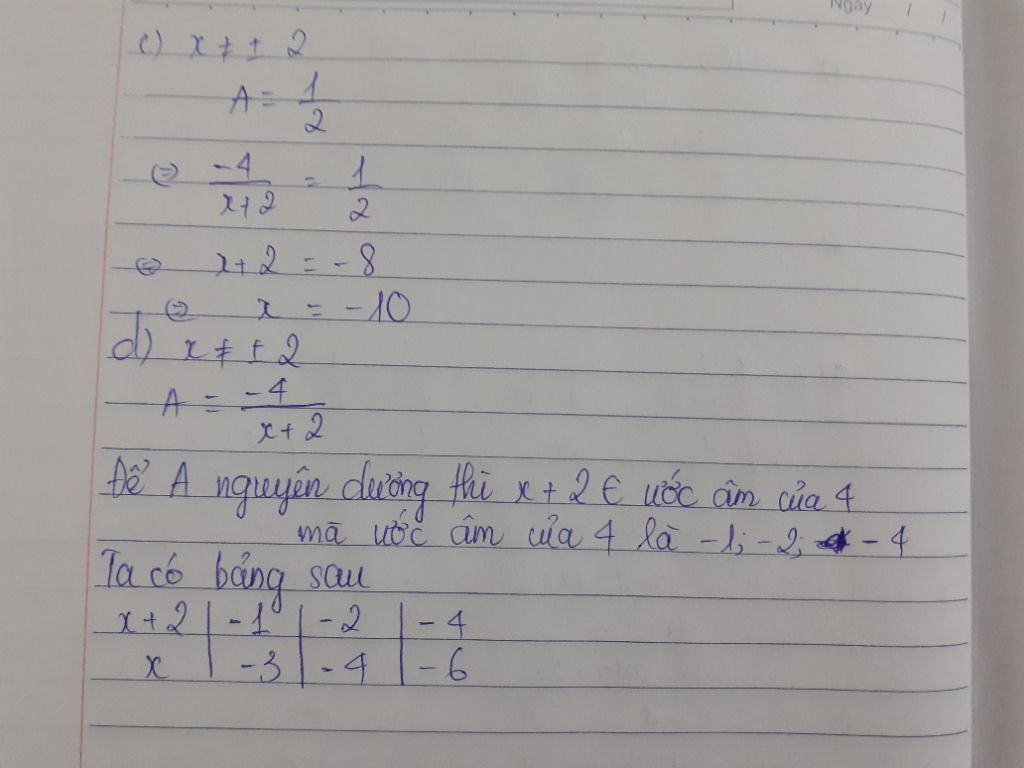 Ngày / /
c) x ≠ ± 2
A = 1/2
⇔ -4/(x+2) = 1/2
⇔ x+2 = -8
⇔ x = -10
d) x ≠ ± 2
A = -4/(x+2)
Để A nguyên dương thì x + 2 ∈ ước âm của 4
mà ước âm của 4 là -1; -2; -4
Ta có bảng sau
x+2 | -1 | -2 | -4
x | -3 | -4 | -6